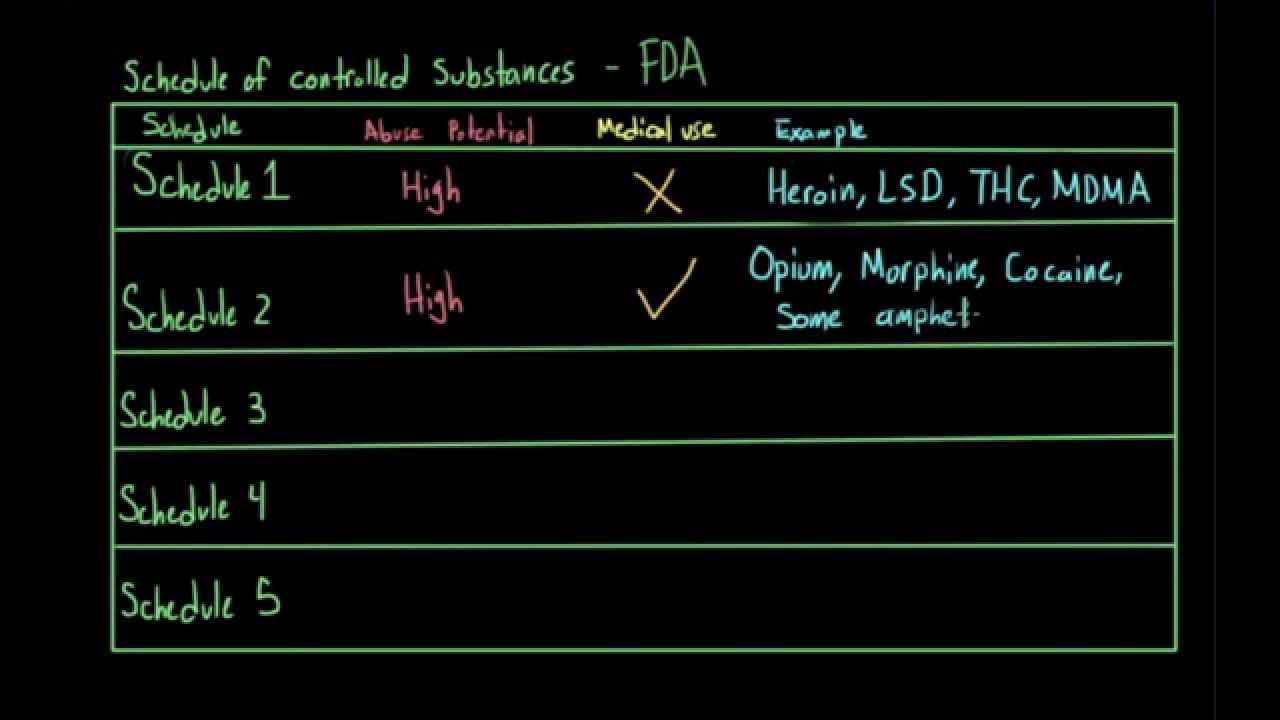 Schedule of controlled Substances - FDA
Schedule Abuse Potential Medical use Example
Schedule 1 High X Heroin, LSD, THC, MDMA
Schedule 2 High ✓ Opium, Morphine, Cocaine,
Some amphet-
Schedule 3
Schedule 4
Schedule 5